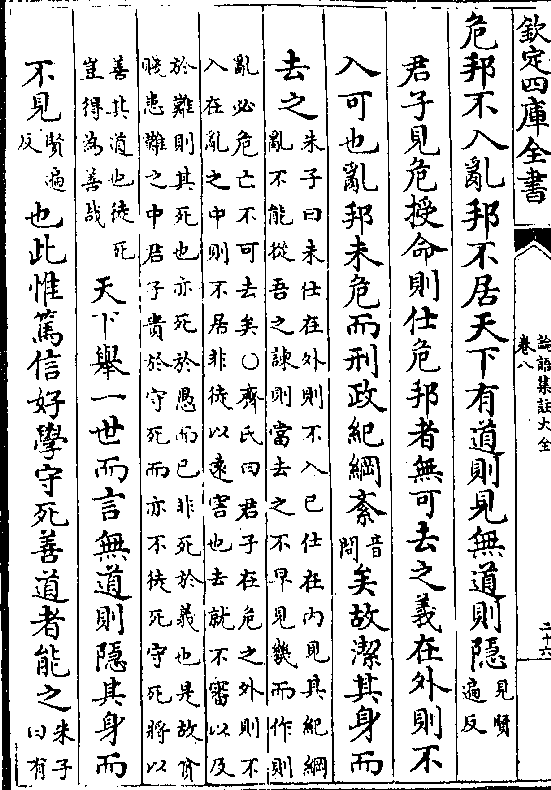 欽定四庫全書
論語集註大全
卷八
二十六
危邦不入亂邦不居天下有道則見無道則隱見賢
遍反
君子見危授命則仕危邦者無可去之義在外則不
入可也亂邦未危而刑政紀綱紊音
問矣故潔其身而
去之朱子曰未仕在外則不入已仕在內見其紀綱
亂不能從吾之諫則當去之不早見幾而作則
亂必危亡不可去矣○齊氏曰君子在危之外則不
入在亂之中則不居非徒以遠害也去就不審以及
於難則其死也亦死於愚而已非死於義也是故
臨患難之中君子貴於守死而亦不徒死守死將以
善其道也徒死
豈得為善哉天下舉一世而言無道則隱其身而
不見賢遍
反也此惟篤信好學守死善道者能之朱子
曰有